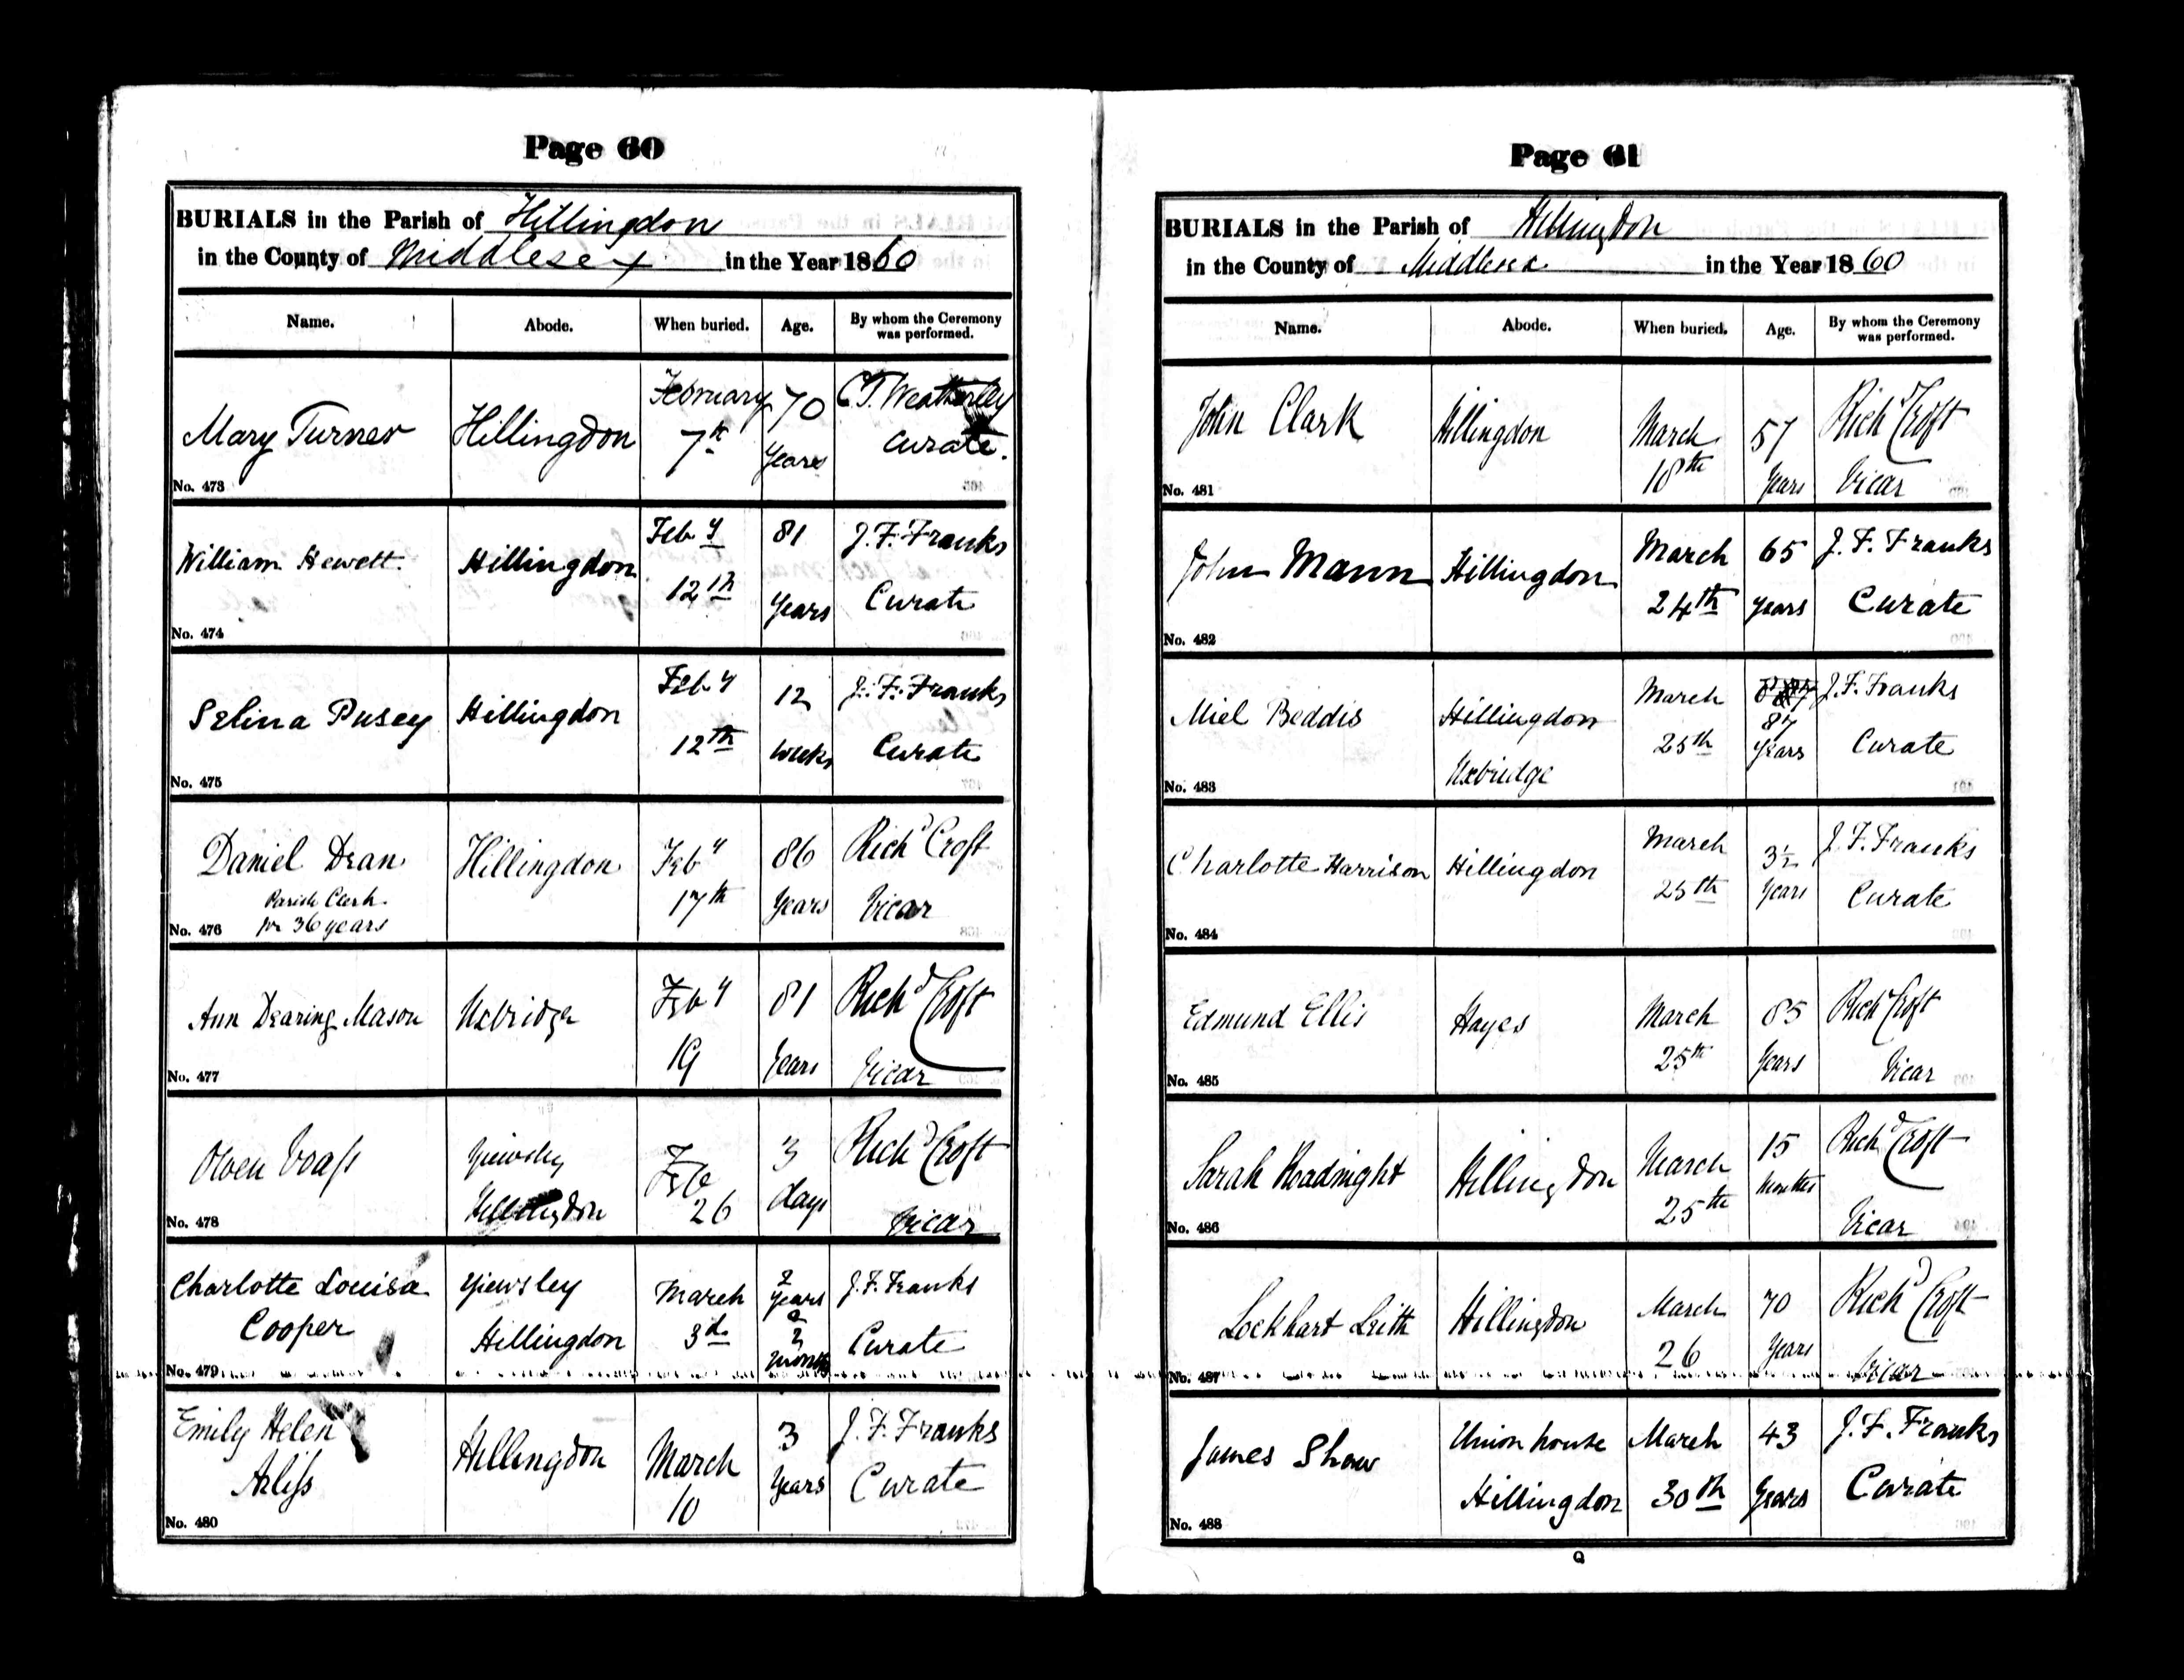 Page 60
BURIALS in the Parish of Hillingdon
in the County of Middlesex in the Year 1860
Name. Abode. When buried. Age. By whom the Ceremony was performed.
Mary Turner Hillingdon February 7th 70 Years C.T. Weatherley Curate.
No. 473
William Hewett. Hillingdon Feby 12th 81 Years J.F. Franks Curate
No. 474
Selina Pusey Hillingdon Feby 12th 12 Weeks J.F. Franks Curate
No. 475
Daniel Dean Hillingdon Feby 17th 86 Years Richd Croft Vicar
Parish Clerk
for 36 years
No. 476
Ann Dearing Mason Uxbridge Feby 19 81 Years Richd Croft Vicar
No. 477
Owen Yiewsley Hillingdon Feb 26 3 days Richd Croft Vicar
No. 478
Charlotte Louisa Cooper Yiewsley Hillingdon March 3d 2 years & 2 months J.F. Franks Curate
No. 479
Emily Helen Arliss Hillingdon March 10 3 Years J.F. Franks Curate
No. 480
Page 61
BURIALS in the Parish of Hillingdon
in the County of Middlesex in the Year 1860
Name. Abode. When buried. Age. By whom the Ceremony was performed.
John Clark Hillingdon March 18th 57 Years Richd Croft Vicar
No. 481
John Mann Hillingdon March 24th 65 years J.F. Franks Curate
No. 482
Miel Beddis Hillingdon Uxbridge March 25th 87 Years J.F. Franks Curate
No. 483
Charlotte Harrison Hillingdon March 25th 3½ Years J.F. Franks Curate
No. 484
Edmund Ellis Hayes March 25th 85 Years Richd Croft Vicar
No. 485
Sarah Roadnight Hillingdon March 25th 15 Months Richd Croft Vicar
No. 486
Lockhart Leith Hillingdon March 26 70 Years Richd Croft Vicar
No. 487
James Shaw Union house Hillingdon March 30th 43 Years J.F. Franks Curate
No. 488
Q